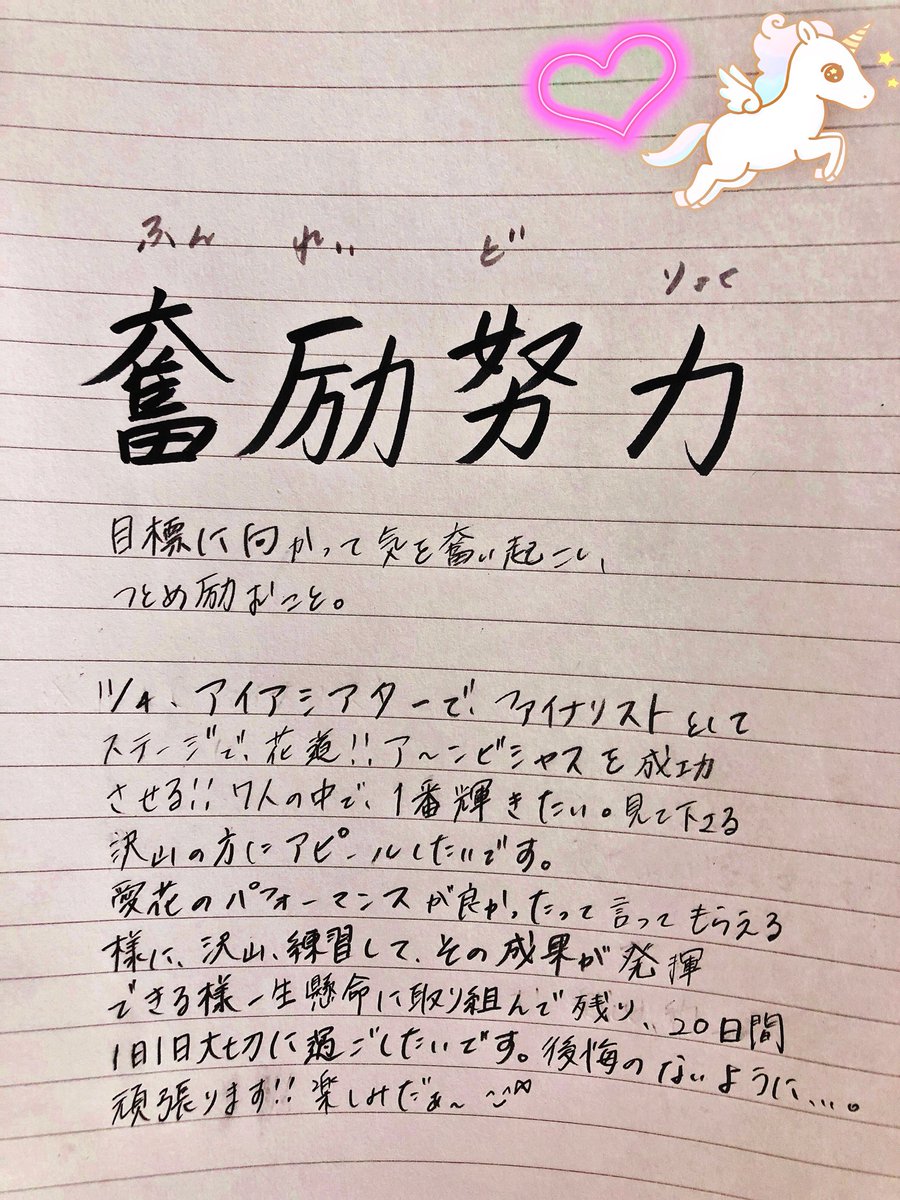 ふんれいど
りょく
奮励努力
目標に向かって気を奮い起こし、
つとめ励むこと。
11/4、アイアシアターで、ファイナリストとして
ステージで、花道!!ア〜ンビシャスを成功
させる!!7人の中で、1番輝きたい。見て下さる
沢山の方にアピールしたいです。
愛花のパフォーマンスが良かったって言ってもらえる
様に、沢山、練習して、その成果が発揮
できる様一生懸命に取り組んで残り、20日間
1日1日大切に過ごしたいです。後悔のないように…。
頑張ります!!楽しみだぁ〜